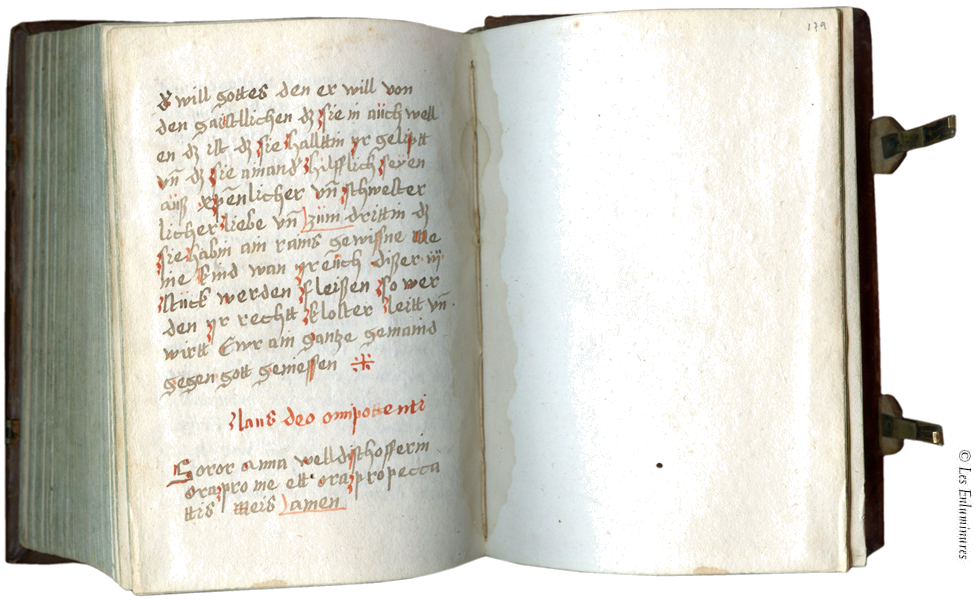 dz will gottes den er will von
den gaistlichen dz sie in aüch well
en dz ist dz sie halltin yr gelipt
vn̄ dz sie ainand hilfflich seyen
aüß vn̄ schwester
licher liebe vn̄ züm drittin dz
sie habin ain rains gewissne
ine kind wan yr eüch dißer iij
stück werden fleißen so wer
den yr rechtt kloster leitt vn̄
wirtt Ewr ain gantze gemaind
gegen gott geniessen
laus deo omipottenti
Soror anna welldishofferin
ora pro me ett ora pro pecca
ttis meis amen
179
© Les Enluminures